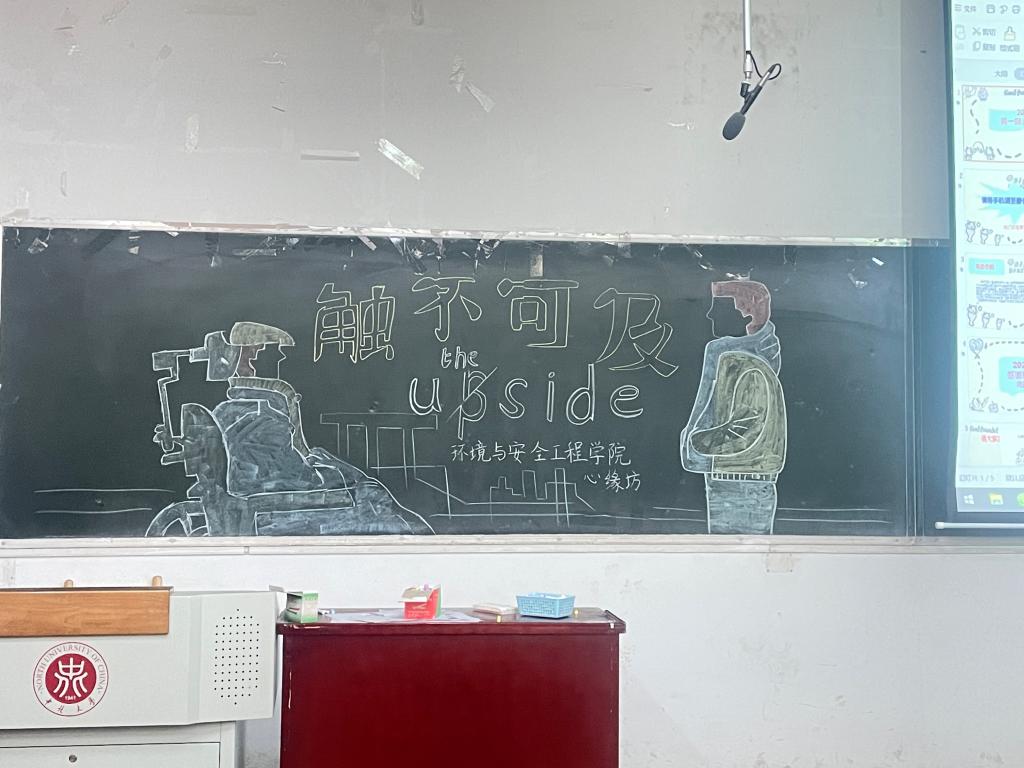 触不可及
the
upside
环境与安全工程学院
心缘坊
NORTH UNIVERSITY OF CHINA
1941
中北大学
文件
剪切
复制
大纲